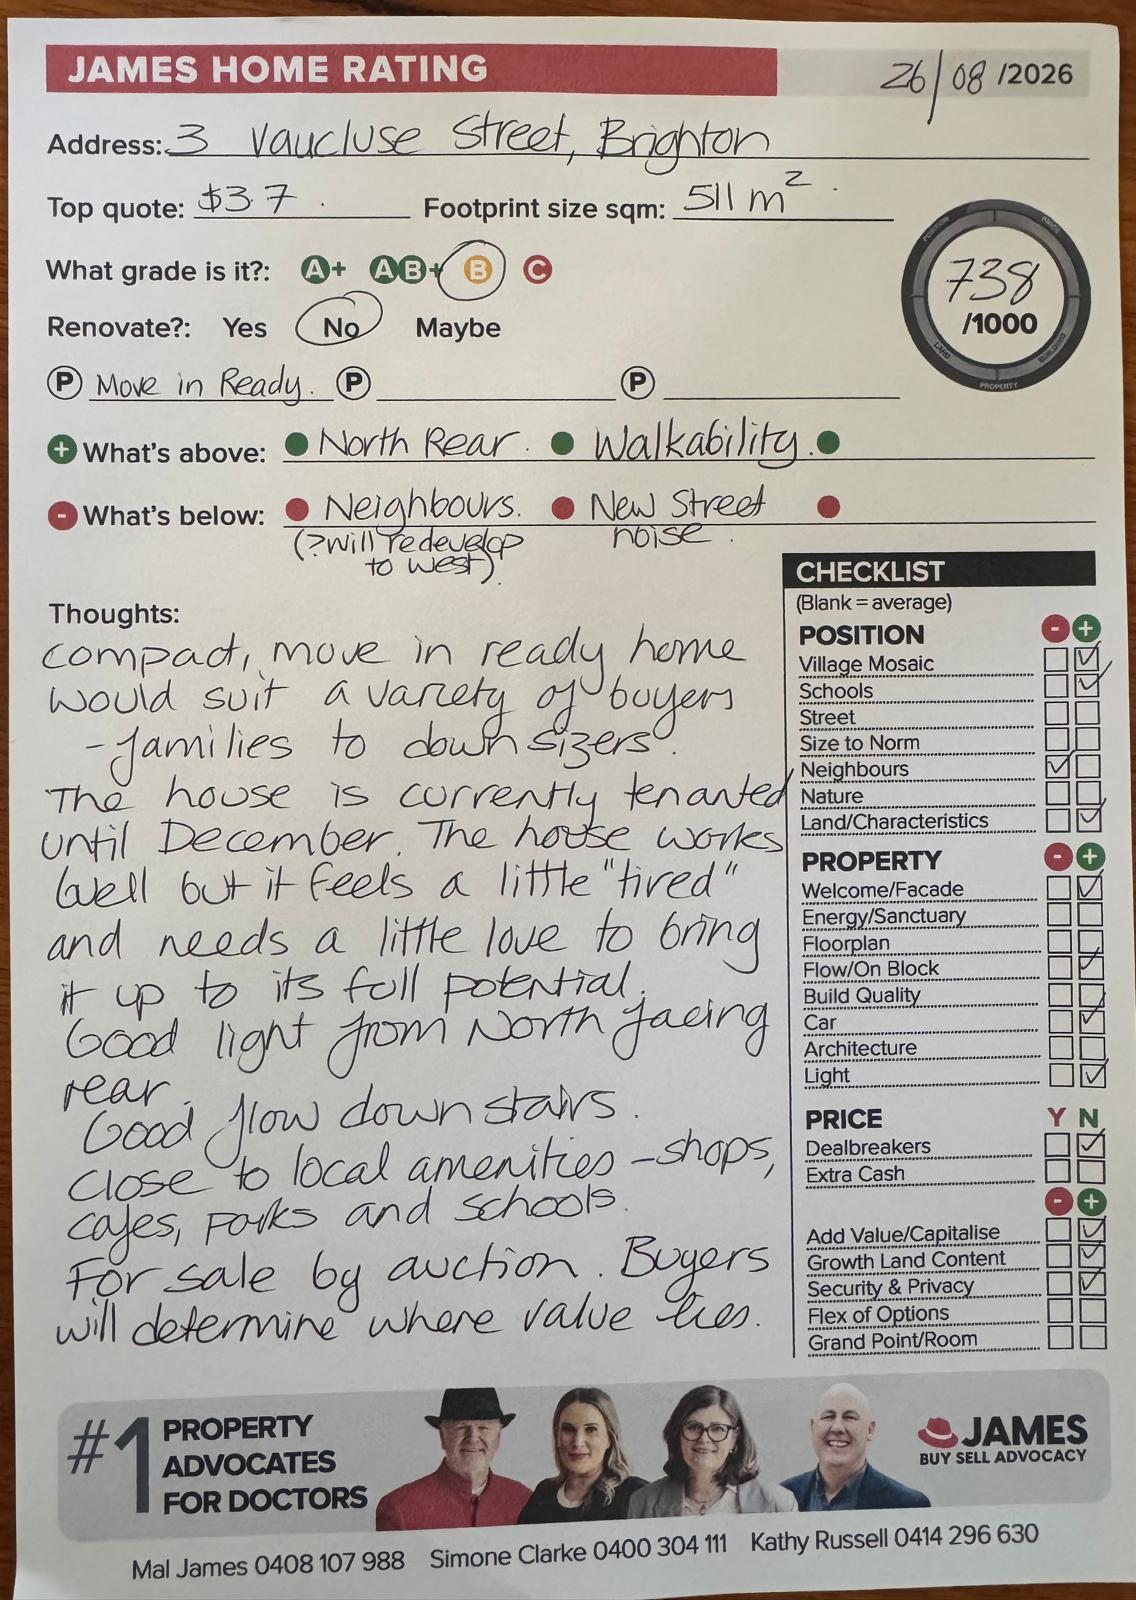 JAMES HOME RATING
26/08 /2026
Address: 3 Vaucluse Street, Brighton
Top quote: $3.7 . Footprint size sqm: 511 m² .
What grade is it?: A+ AB+ B C
738
/1000
POSITION
LAND
BUILDING
PROPERTY
Renovate?: Yes No Maybe
P Move in Ready. P P
+ What's above: North Rear. Walkability.
- What's below: Neighbours. New Street
(?will redevelop noise.
to west).
Thoughts:
compact, move in ready home
would suit a variety of buyers
- families to downsizers.
The house is currently tenanted
until December. The house works
well but it feels a little "tired"
and needs a little love to bring
it up to its full potential.
Good light from North facing
rear.
Good flow downstairs.
Close to local amenities - shops,
cafes, parks and schools.
For sale by auction. Buyers
will determine where value lies.
CHECKLIST
(Blank = average)
POSITION - +
Village Mosaic
Schools
Street
Size to Norm
Neighbours
Nature
Land/Characteristics
PROPERTY - +
Welcome/Facade
Energy/Sanctuary
Floorplan
Flow/On Block
Build Quality
Car
Architecture
Light
PRICE Y N
Dealbreakers
Extra Cash
- +
Add Value/Capitalise
Growth Land Content
Security & Privacy
Flex of Options
Grand Point/Room
#1 PROPERTY
ADVOCATES
FOR DOCTORS
JAMES
BUY SELL ADVOCACY
Mal James 0408 107 988 Simone Clarke 0400 304 111 Kathy Russell 0414 296 630